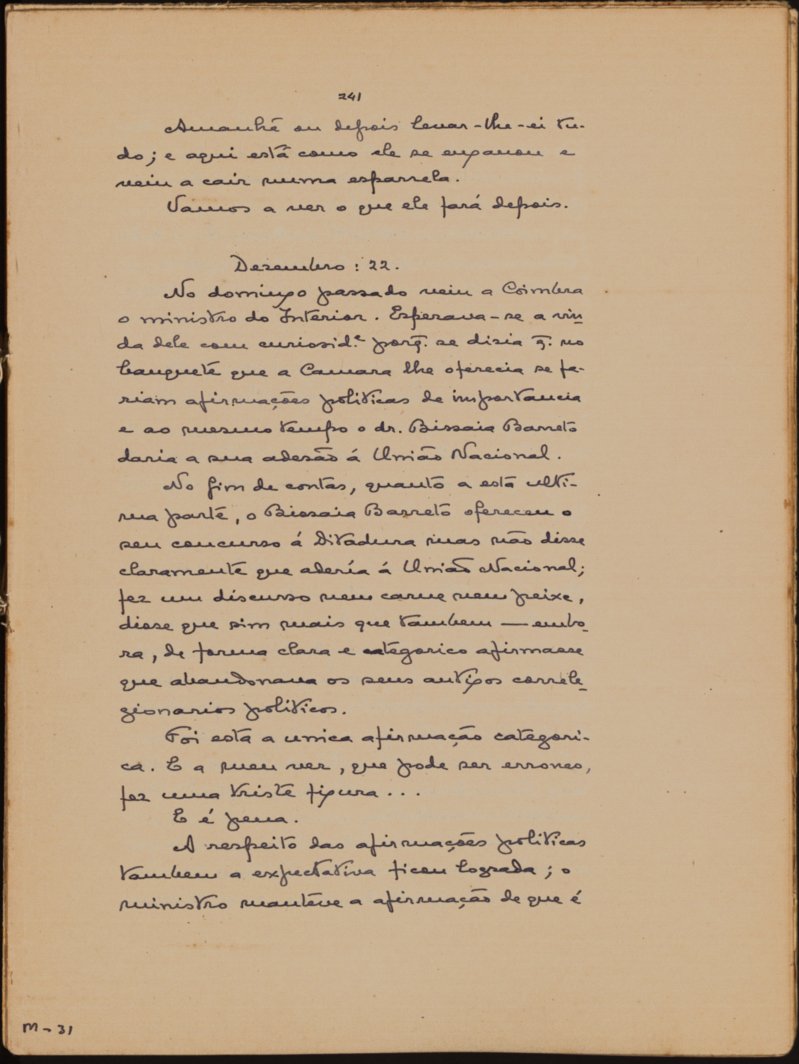 241
Amanhã ou depois levar-lhe-ei tu-
do; e aqui está como ele se enganou e
veiu a cair numa esparrela.
Vamos a ver o que ele fará depois.
Dezembro: 22.
No domingo passado veiu a Coimbra
o ministro do Interior. Esperava-se a vin-
da dele com curiosid.e porq. se dizia q. no
banquete que a Camara lhe oferecia se fa-
riam afirmações politicas de importancia
e ao mesmo tempo o dr. Bissaia Barreto
daria a sua adesão á União Nacional.
No fim de contas, quanto a esta ulti-
ma parte, o Bissaia Barreto ofereceu o
seu concurso á Ditadura mas não disse
claramente que adería á União Nacional;
fez um discurso nem carne nem peixe,
disse que sim mais que tambem — embo-
ra, de forma clara e categorica afirmasse
que abandonava os seus antigos correle-
gionarios politicos.
Foi esta a unica afirmação categori-
ca. E a meu ver, que pode ser erroneo,
fez uma triste figura...
E é pena.
A respeito das afirmações politicas
tambem a expectativa ficou lograda; o
ministro manteve a afirmação de que é
M-31